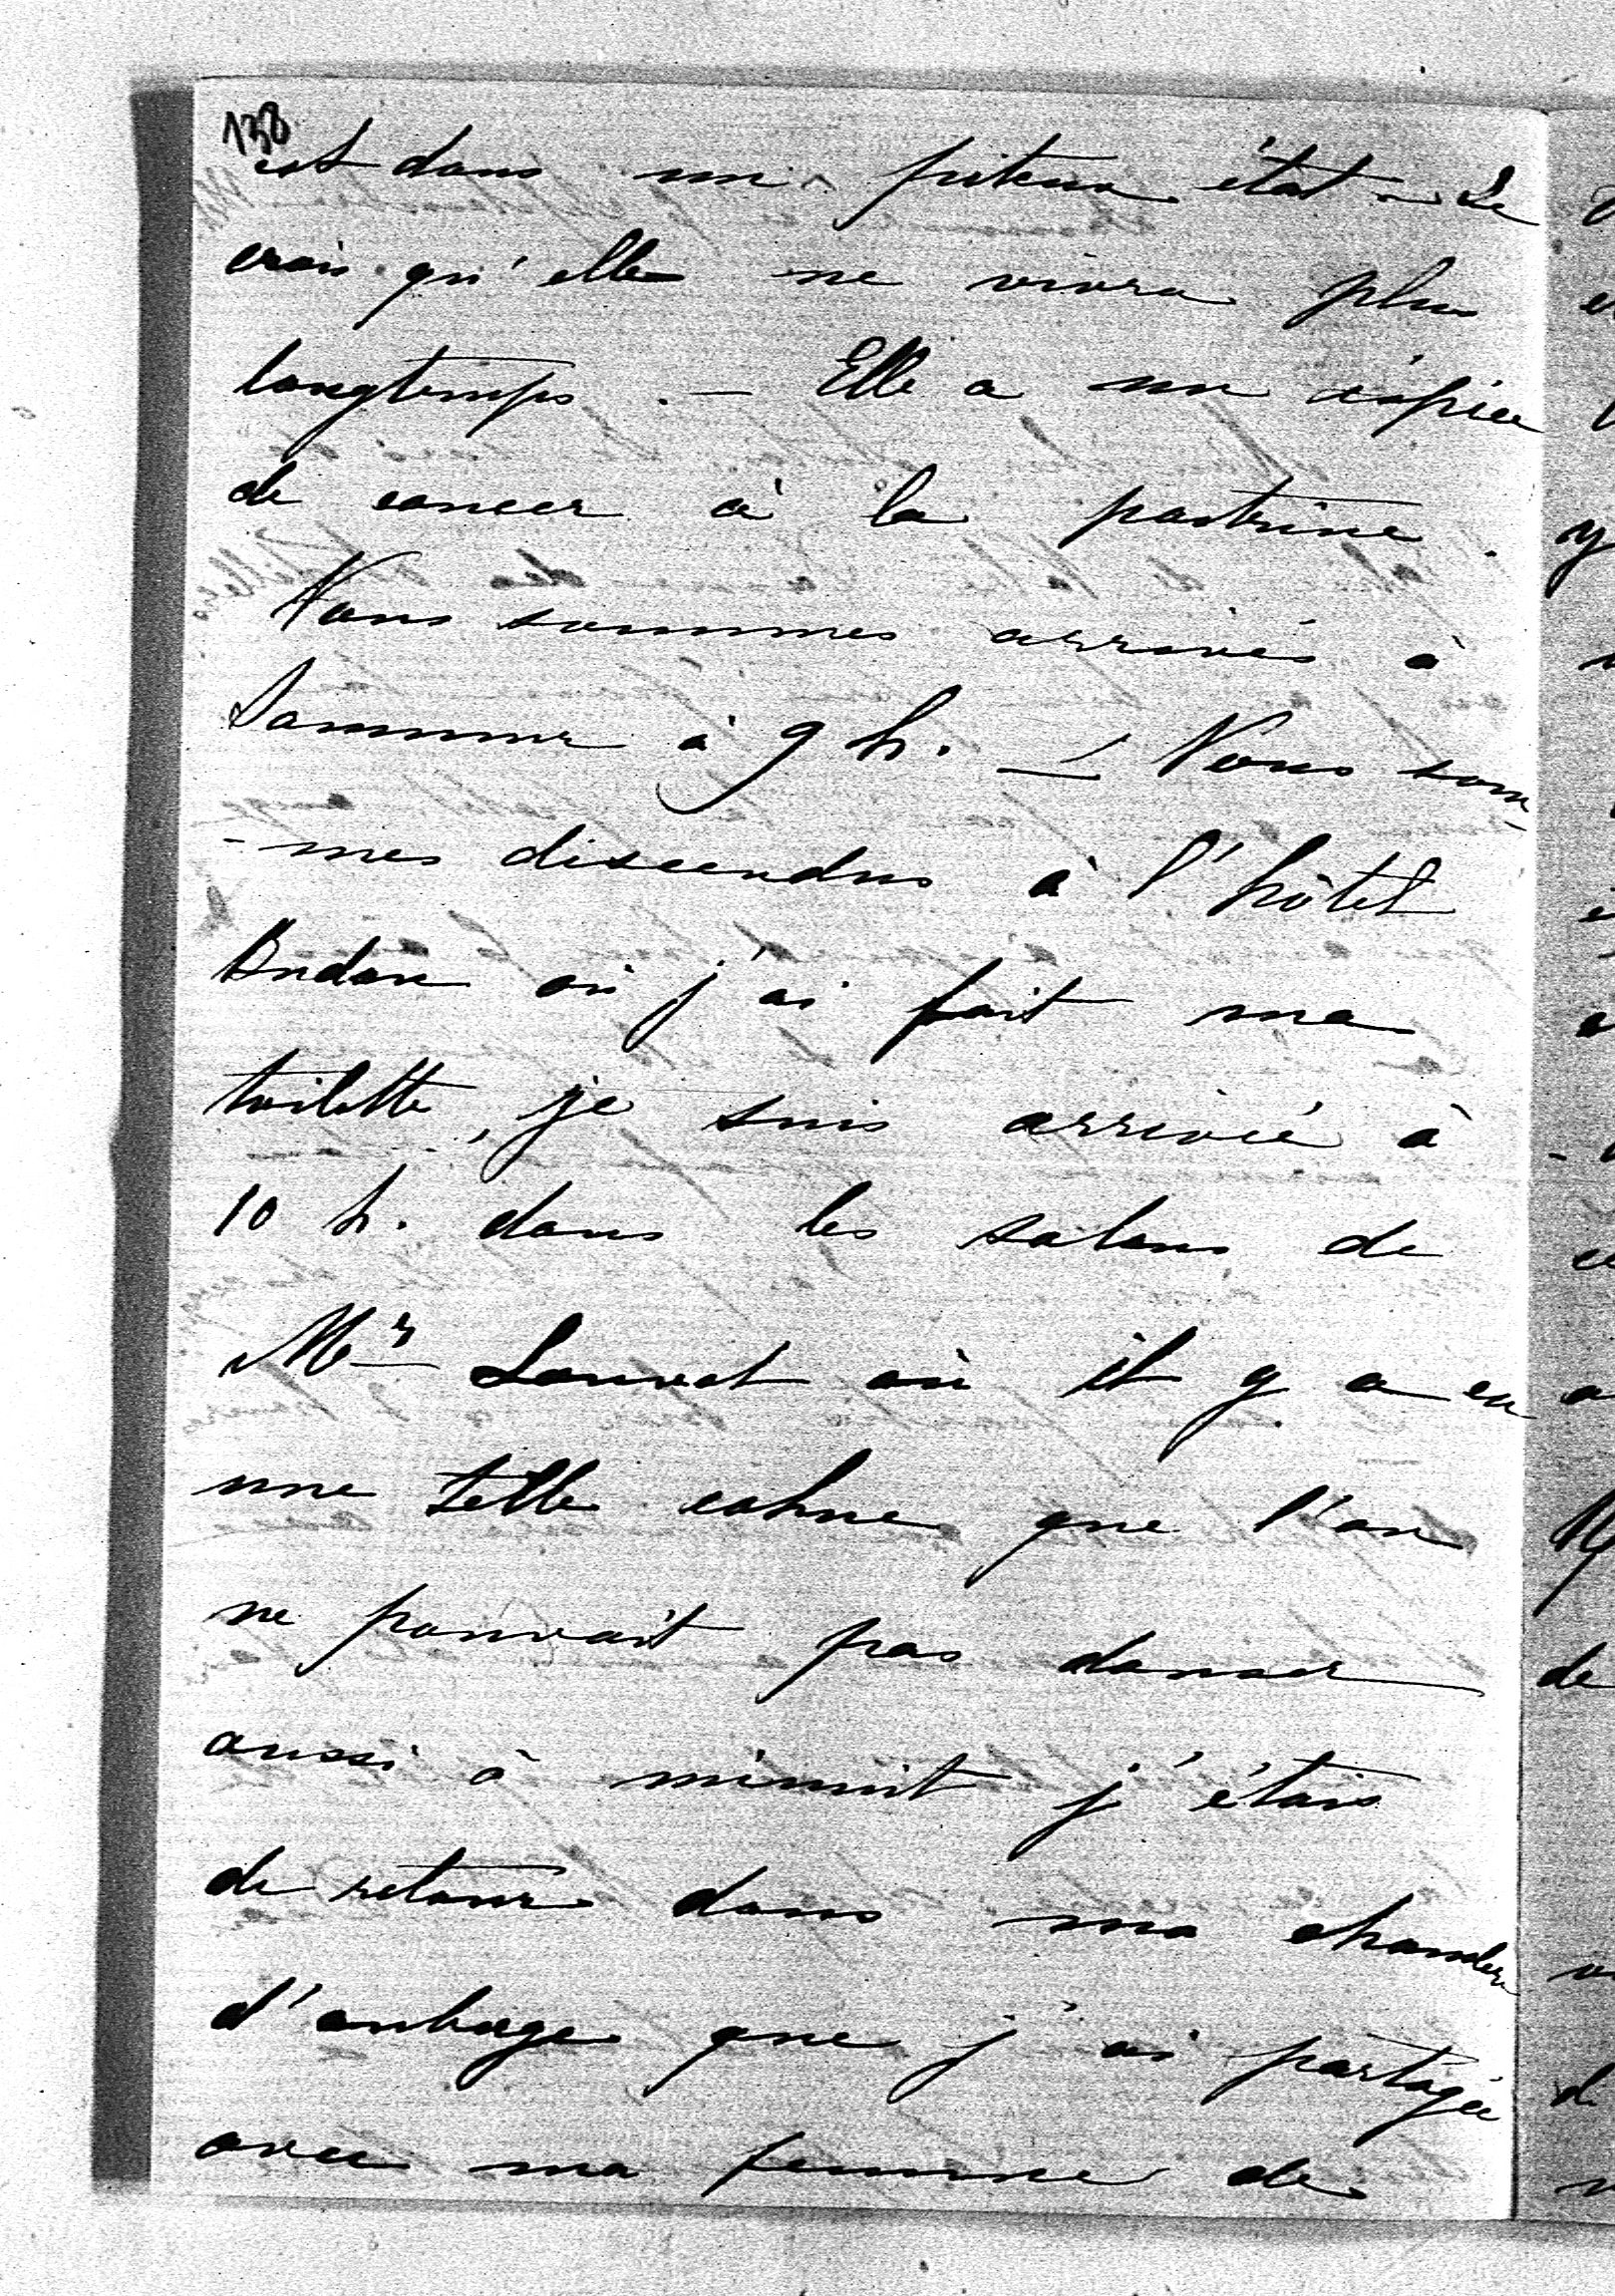 138
est dans un piteux état. Je
crois qu'elle ne vivra plus
longtemps. — Elle a une éspèce
de cancer à la poitrine.
Nous sommes arrivés à
Saumur à 9 h. — Nous som-
-mes descendus à l'hôtel
Budan où j'ai fait ma
toilette, je suis arrivée à
10 h. dans les salons de
Mr Louvet où il y a eu
une telle cohue que l'on
ne pouvait pas danser
aussi à minuit j'étais
de retour dans ma chambre
d'auberge que j'ai partagée
avec ma femme de